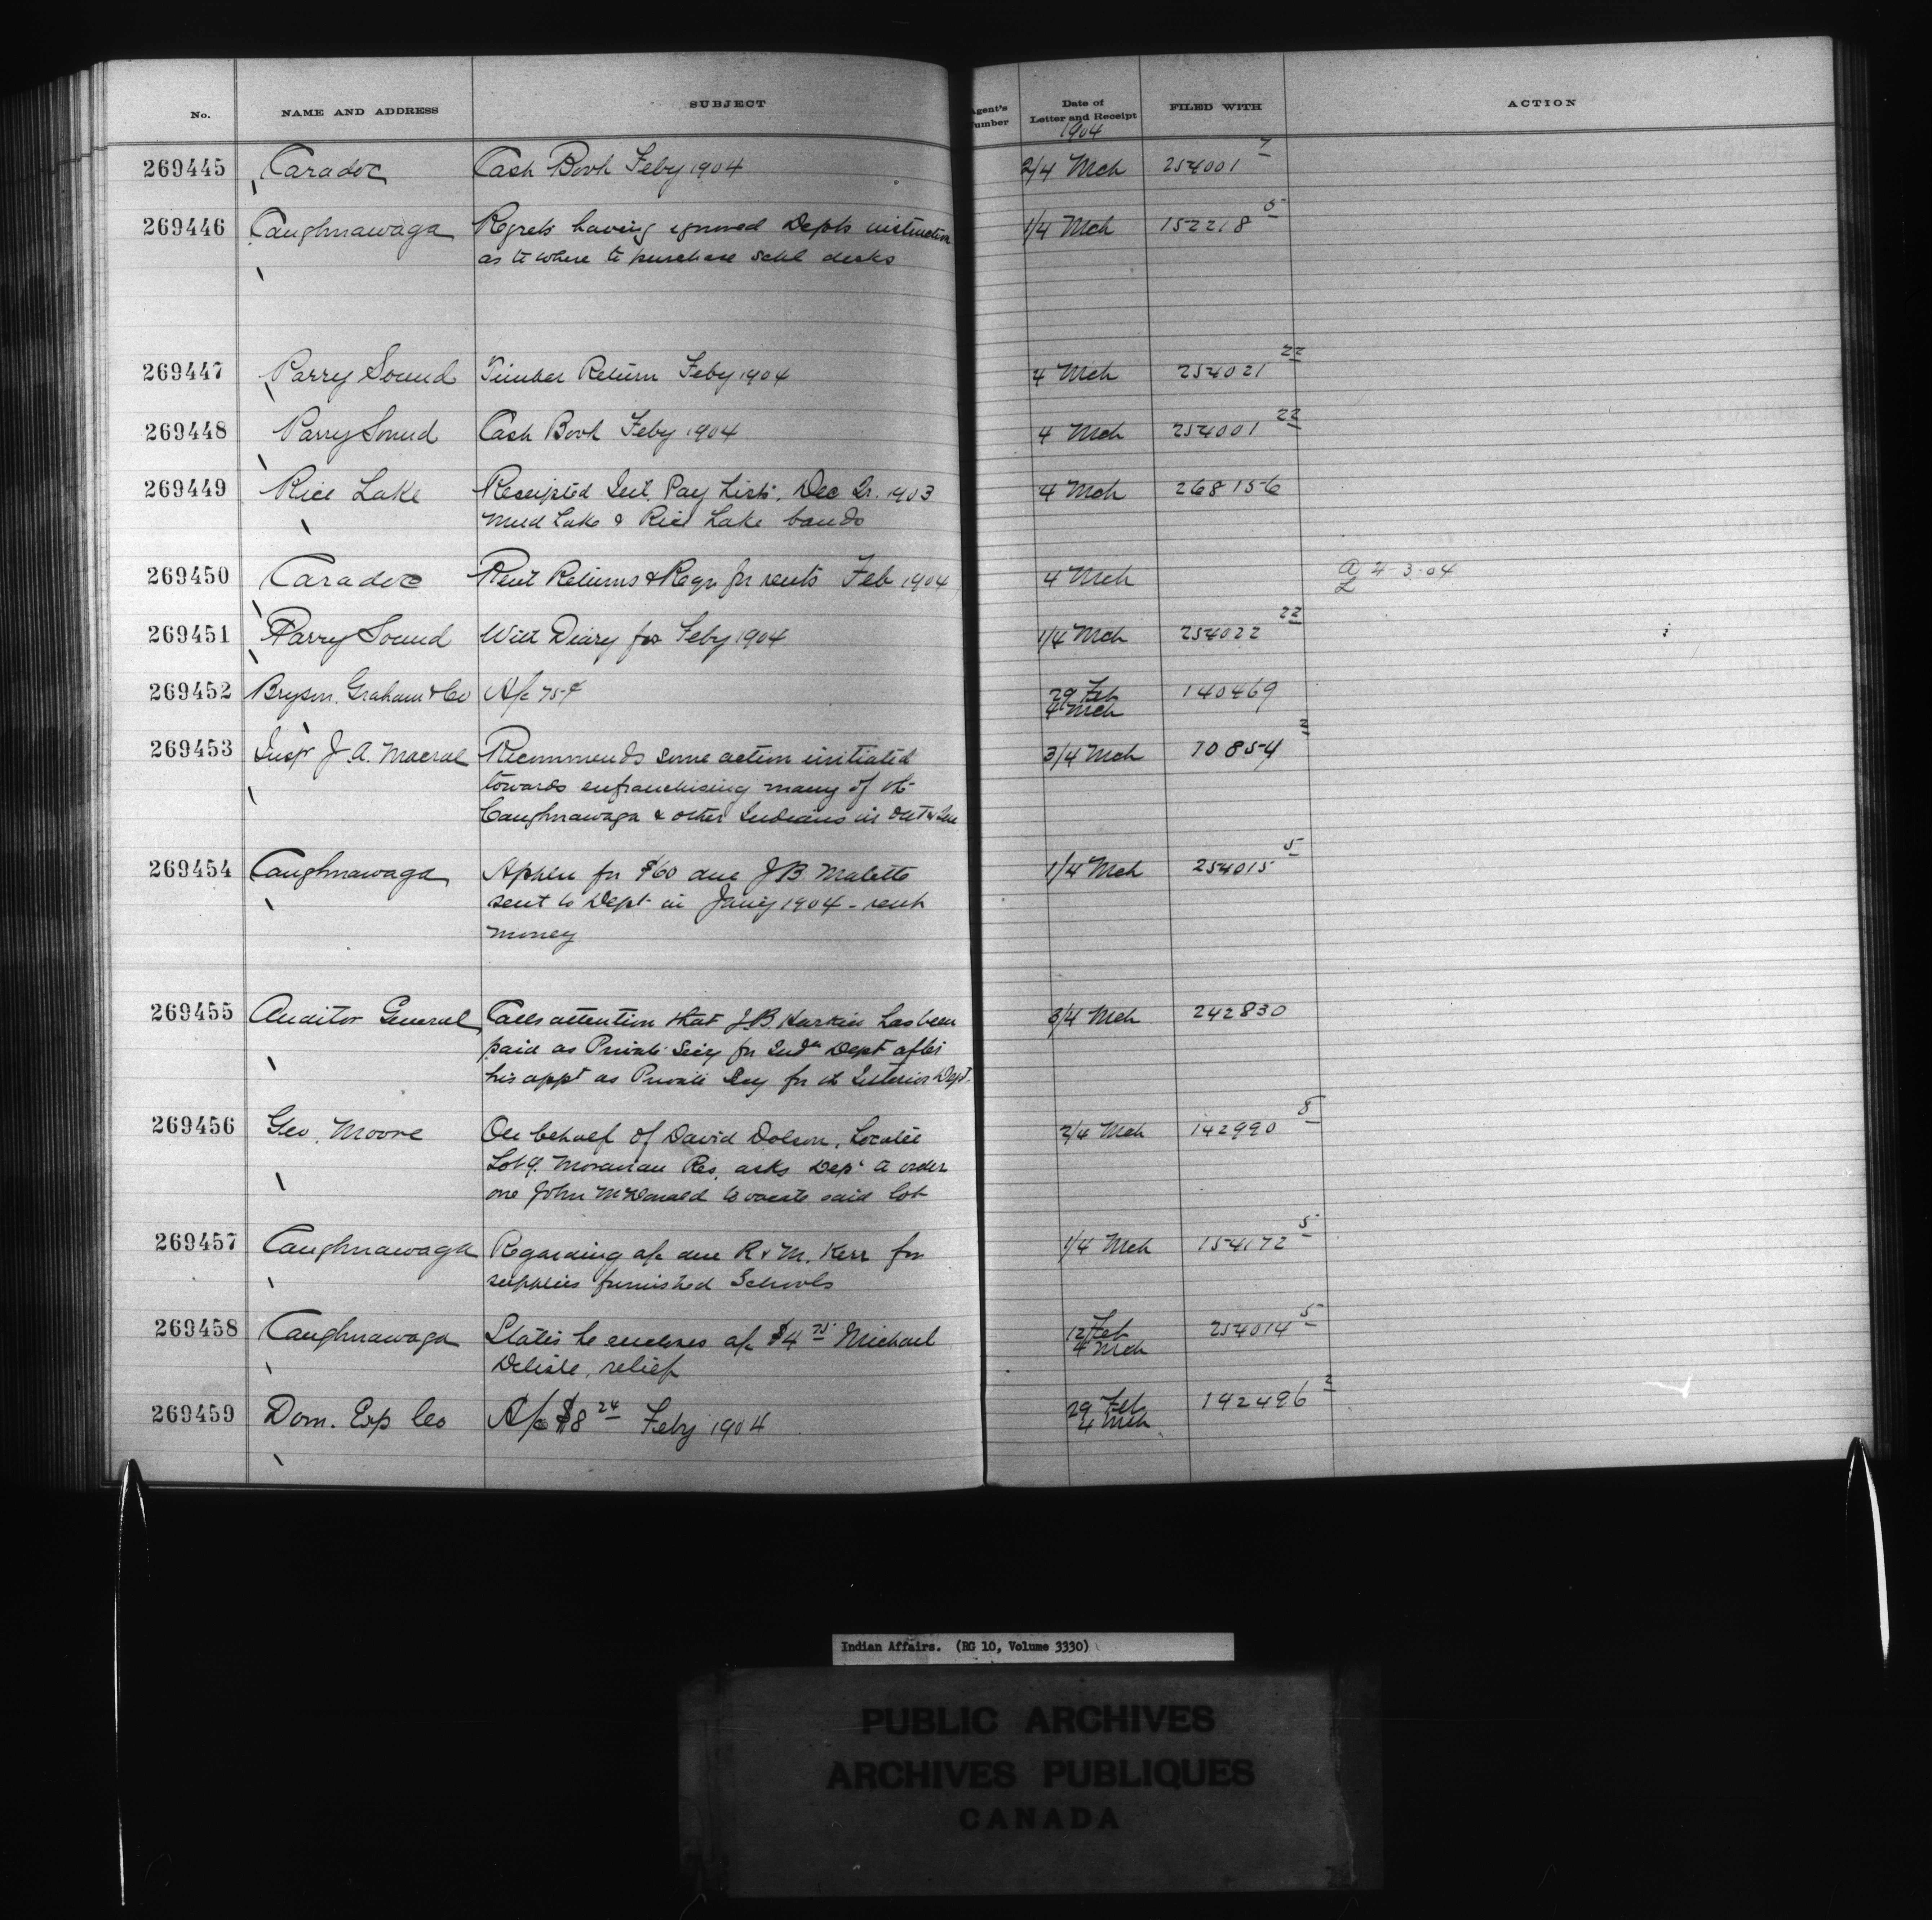 No. NAME AND ADDRESS SUBJECT Agent's Number Date of Letter and Receipt FILED WITH ACTION
1904
269445 Caradoc Cash Book Feby 1904 2/4 Mch 254001 7
269446 Caughnawaga Regrets having ignored Depts instruction 1/4 Mch 152218 5
as to where to purchase schl desks
269447 Parry Sound Timber Return Feby 1904 4 Mch 254021 22
269448 Parry Sound Cash Book Feby 1904 4 Mch 254001 22
269449 Rice Lake Receipted Int. Pay Lists, Dec Qr. 1903 4 Mch 268156
Mud Lake & Rice Lake bands
269450 Caradoc Rent Returns & Reqn for rents Feb 1904 4 Mch A 4-3-04
L
269451 Parry Sound Will Diary for Feby 1904 1/4 Mch 254022 22
269452 Bryson, Graham & Co A/c 75¢ 29 Feb 140469
4 Mch
269453 Insp J. A. Macrae Recommends some action initiated 3/4 Mch 70854 2
towards enfranchising many of the
Caughnawaga & other Indians in Ont & Que
269454 Caughnawaga Applen for $60 due J B. Malette 1/4 Mch 254015 5
sent to Dept in Jany 1904 - rent
money
269455 Auditor General Calls attention that J.B. Harkin has been 3/4 Mch 242830
paid as Private Secy for Indn Dept after
his appt as Private Secy for the Interior Dept.
269456 Geo. Moore On behalf of David Dolson, Locatee 2/4 Mch 142990 8
Lot 9. Moravian Res, asks Dept to order
one John McDonald to vacate said lot
269457 Caughnawaga Regarding a/c due R & M. Kerr for 1/4 Mch 154172 5
supplies furnished Schools
269458 Caughnawaga States he encloses a/c $4 75 Michael 12 Feb 254014 5
Delisle, relief 4 Mch
269459 Dom. Exp Co A/c $8 24 Feby 1904 29 Feb 142496 2
4 Mch
Indian Affairs. (RG 10, Volume 3330)
PUBLIC ARCHIVES
ARCHIVES PUBLIQUES
CANADA